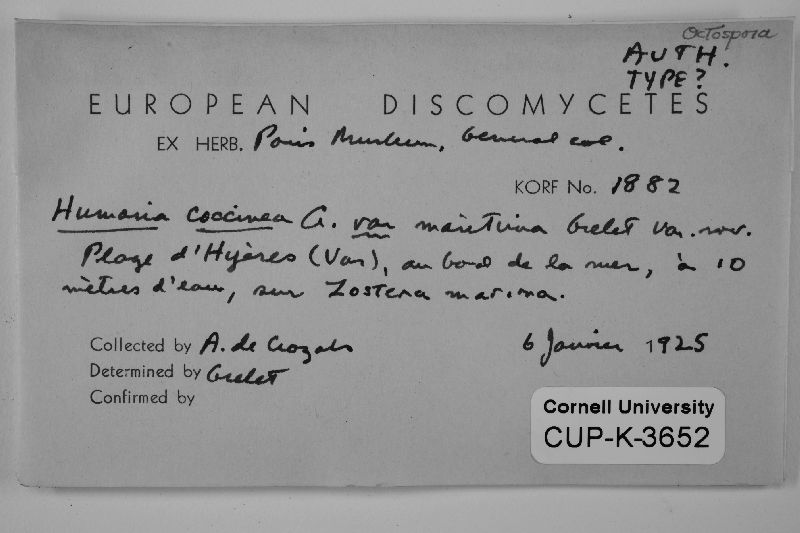 Octospora
AUTH.
TYPE?
EUROPEAN DISCOMYCETES
EX HERB. Paris Museum, General col.
KORF No. 1882
Humaria coccinea G. var maritima Grelet var. nov.
Plage d'Hyères (Var), au bord de la mer, à 10
mètres d'eau, sur Zostera marina.
Collected by A. de Crozals 6 Janvier 1925
Determined by Grelet
Confirmed by
Cornell University
CUP-K-3652